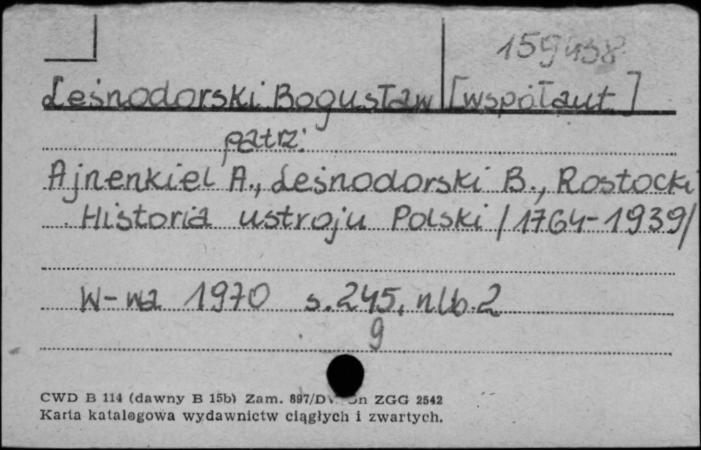 159438
Leśnodorski Bogusław [współaut.]
patrz:
Ajnenkiel A., Leśnodorski B., Rostocki
Historia ustroju Polski /1764-1939/
W-wa 1970 s. 245, nlb. 2
9
CWD B 114 (dawny B 15b) Zam. 897/D ZGG 2542
Karta katalogowa wydawnictw ciągłych i zwartych.